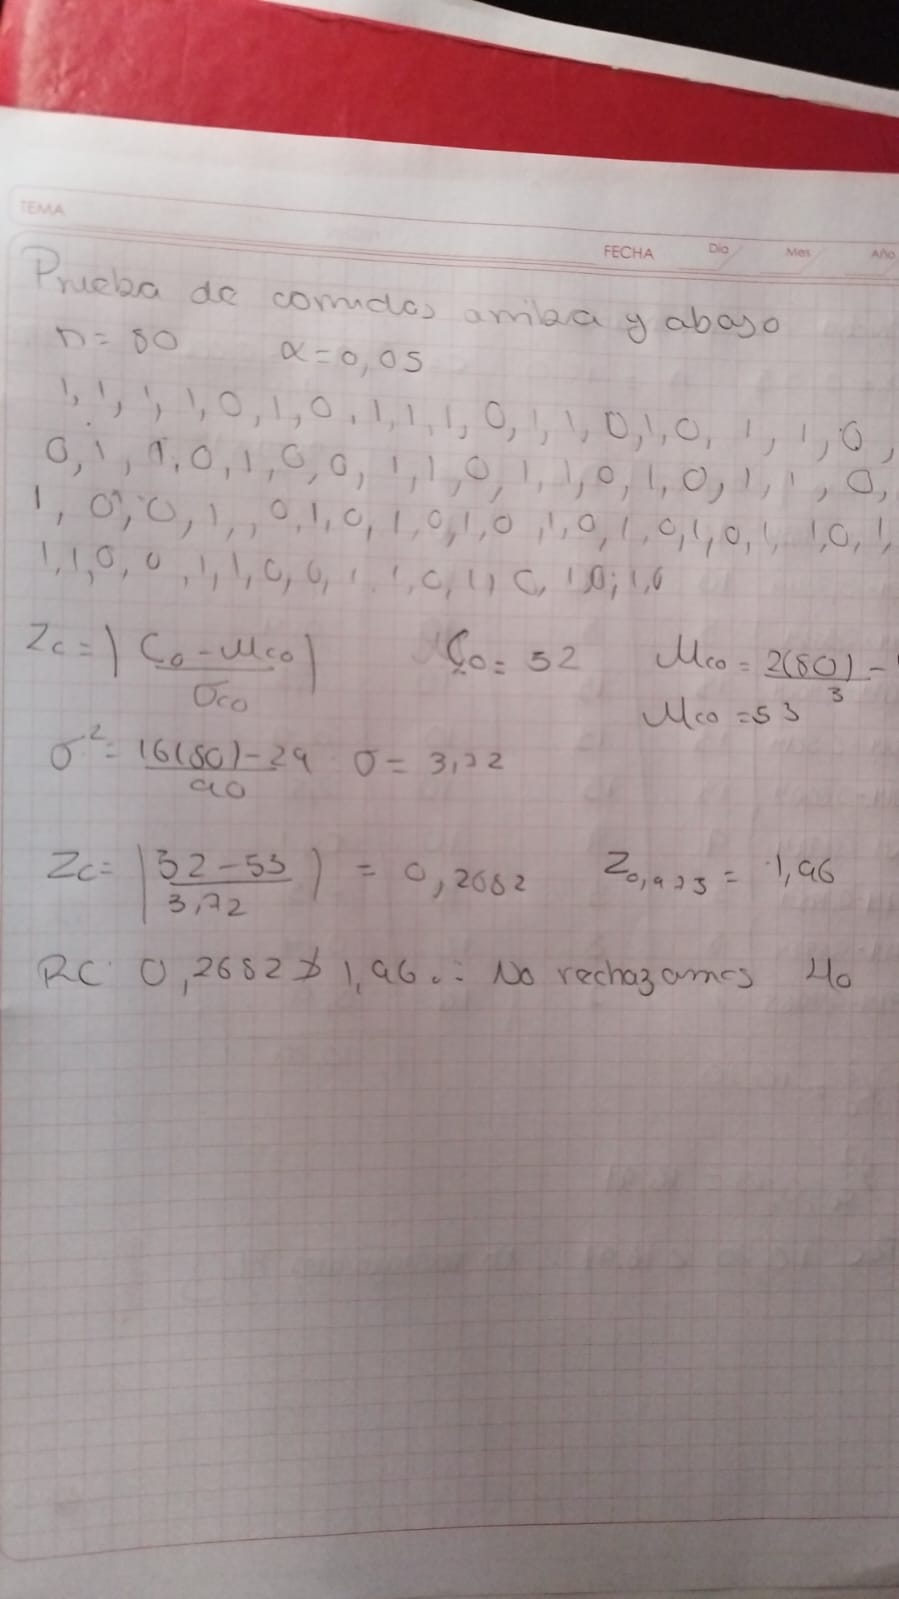 TEMA
FECHA Día Mes Año
Prueba de corridas arriba y abajo
n= 80 α=0,05
1, 1, 1, 1, 0, 1, 0, 1, 1, 1, 0, 1, 1, 0, 1, 0, 1, 1, 0,
0, 1, 1, 0, 1, 0, 0, 1, 1, 0, 1, 1, 0, 1, 0, 1, 1, 0,
1, 0, 0, 1, 0, 1, 0, 1, 0, 1, 0, 1, 0, 1, 0, 1, 0, 1, 1, 0, 1,
1, 1, 0, 0, 1, 1, 0, 0, 1, 1, 0, 1, 0, 1, 0, 1, 0
Zc= |Co - μco / σco| Co= 52 μco = 2(80) - / 3
μco = 53
σ²= 16(80)-29 / 90 σ= 3,72
Zc= |52-53 / 3,72| = 0,2682 Z0,975 = 1,96
RC 0,2682 ≯ 1,96 ∴ No rechazamos Ho